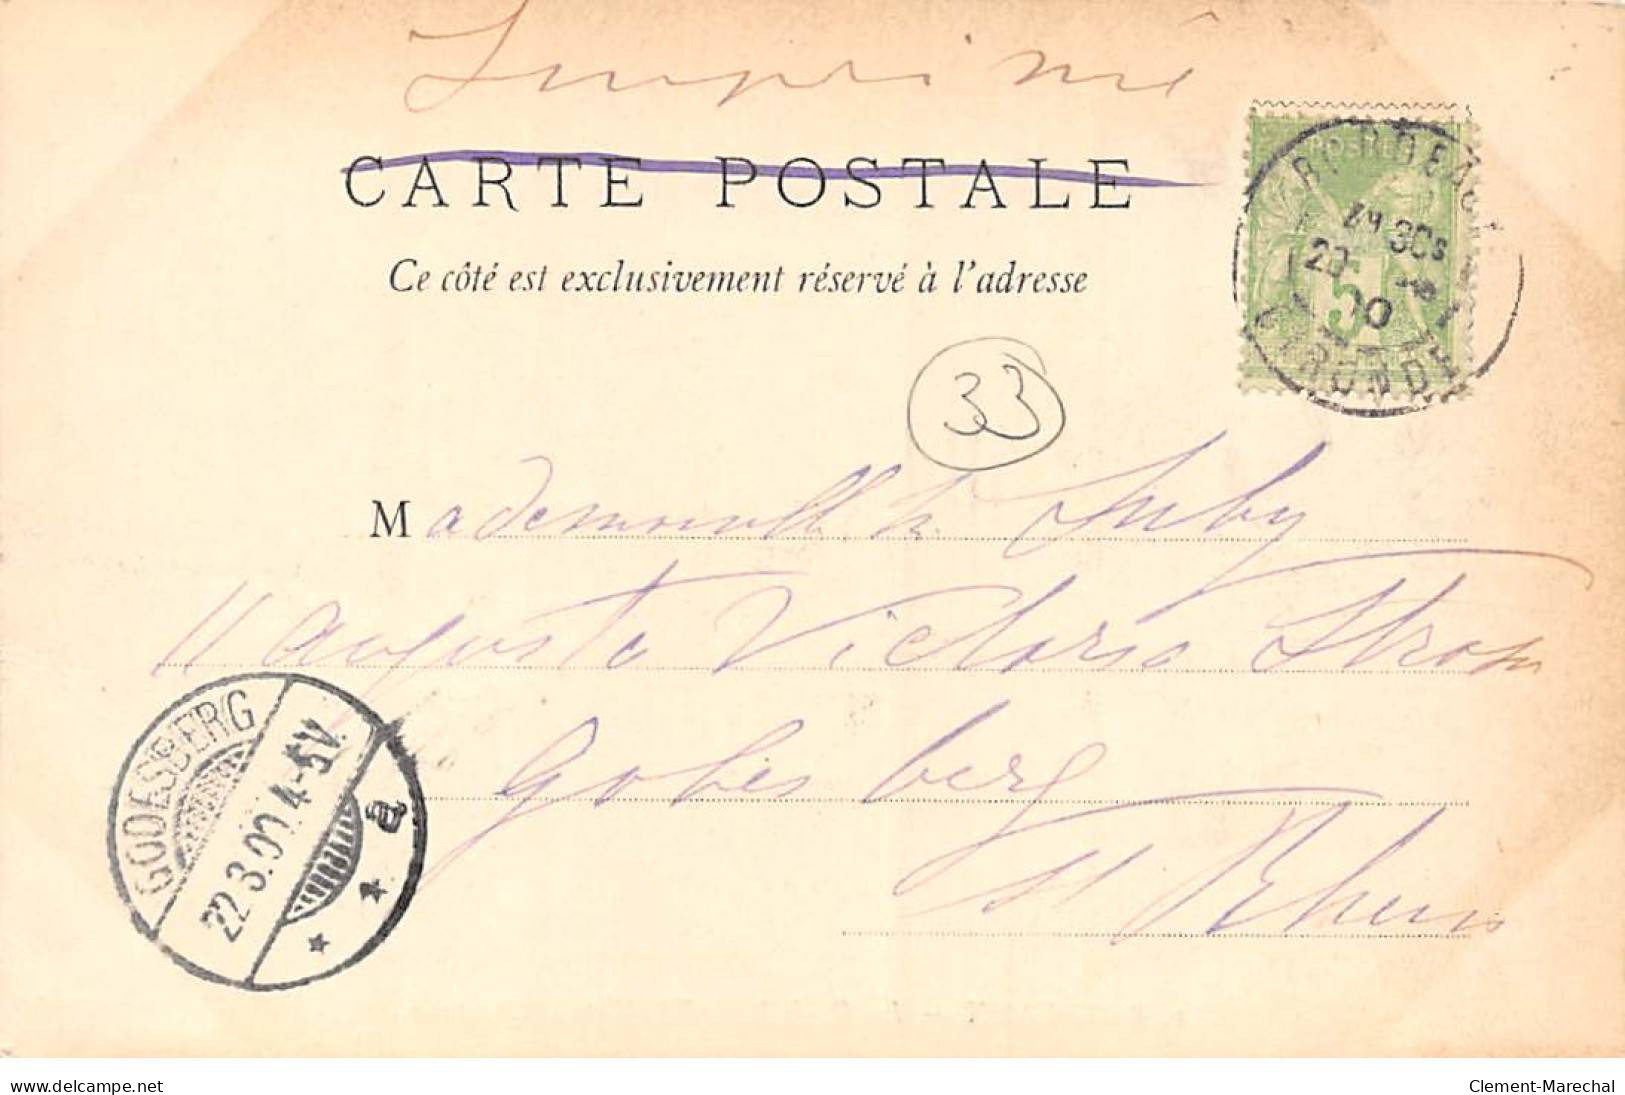 Imprimé
CARTE POSTALE
Ce côté est exclusivement réservé à l'adresse
POSTES
BORDEAUX
20
5
00
GIRONDE
33
Mademoiselle
11 Augusta Victoria Strass
Godesberg
s/ Rhein
GODESBERG
22.3.00.4-5V.
a
www.delcampe.net
Clement-Marechal